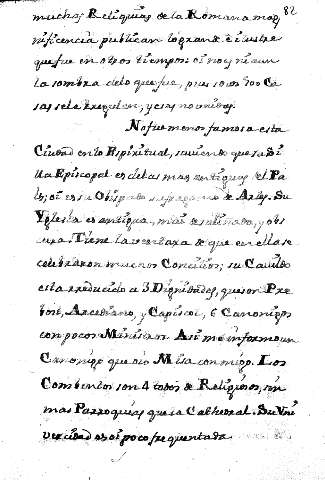 82
muchas Reliquias de la Romana mag
nificencia publican lo grande è ilustre
que fue en otros tiempos: oi no es ni aun
la sombra de lo que fue, pues solos 500 Ca
sas se le
No fue menos famosa esta
Ciudad en lo Espiritual, sauiendo que su Si
lla Episcopal es de las mas antiguas del Pa
is; oi es su Obispado sufraganeo de Arles. Su
Yglesia es antigua, mui y obs
cura. Tiene la ventaxa de que en ella se
celebraron muchos Concilios; su Cauildo
esta reducido a 3 Dignidades, que son Pre
bost, Arcediano, y Capiscol, 6 Canonigos
con pocos Ministros. Asi me informo un
Canonigo que oio Missa conmigo. Los
Combentos son 4 todos de Religiosos, sin
mas Parroquias que la Cathedral. Su Vni
versidad es oi poco frequentada